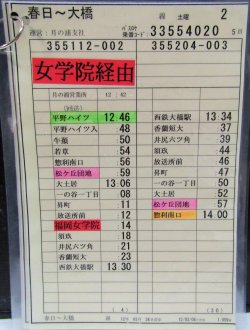 春日～大橋 線 土曜 2
運営：月の浦支社 33554020
355112-002 355204-003
女学院経由
月の浦営業所 12:42
平野ハイツ 12 46
平野ハイツ入 :48
牛頸 :50
若草 :54
惣利南口 :56
松ケ丘団地 :59
大土居 13 06
一の谷一丁目 :08
昇町 :11
放送所前 :12
福岡女学院 :14
須玖 :18
井尻六ツ角 :21
香蘭短大 :23
西鉄大橋駅 13 30
西鉄大橋駅 13 34
香蘭短大 :37
井尻六ツ角 :39
須玖 :42
放送所前 :46
昇町 :47
一の谷一丁目 :50
大土居 :52
松ケ丘団地 :57
惣利南口 14 00
(4) (30)
春日～大橋